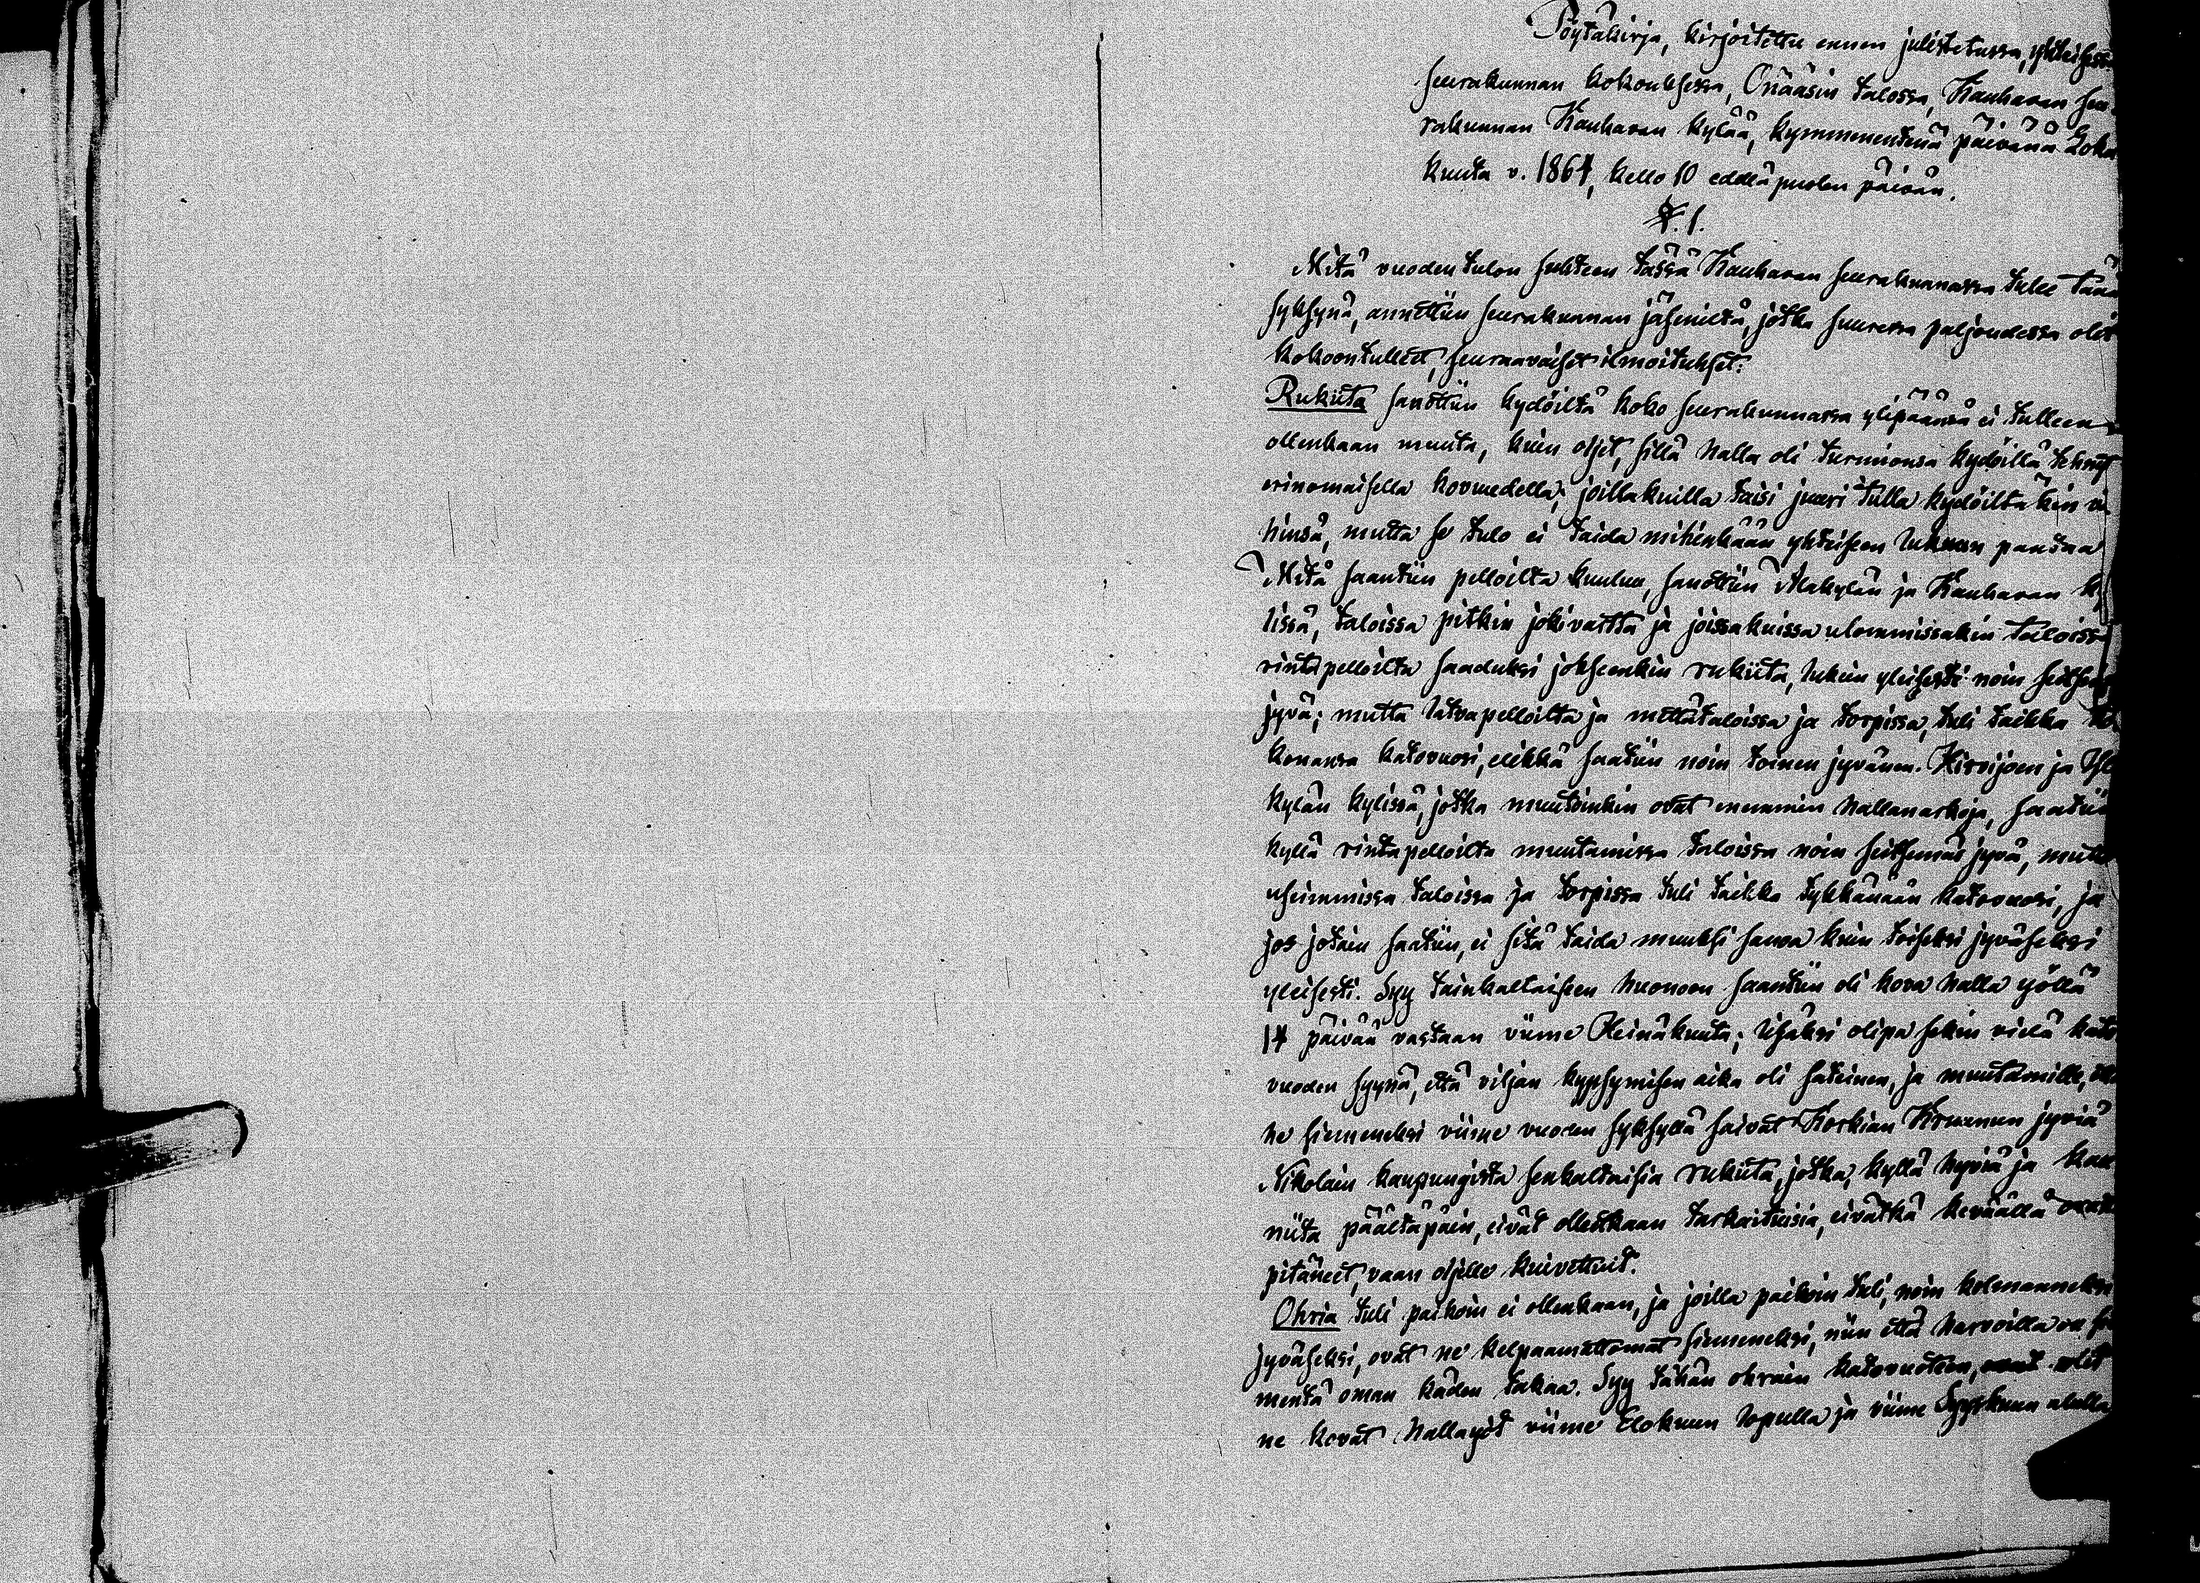 Pöytäkirja, kirjoitettu ennen julistetussa, yhteisessä
seurakunnan kokouksessa, Önääsin talossa, Kauhavan seu-
rakunnan Kauhavan kylää, kymmenentenä päivänä Loka
kuuta v. 1864, kello 10 edellä puolen päivän.
§. 1.
Mitä vuoden tulon suhteen tässä Kauhavan seurakunnassa tulee tänä
syksynä, annettiin seurakunnan jäseniltä, jotka suuressa paljoudessa olit
kokoontulleet, seuraavaiset ilmoitukset:
Rukiita sanottiin kydöiltä koko seurakunnassa ylipäänsä ei tulleen
ollenkaan muuta, kuin oljet, sillä halla oli turmionsa kydöillä tehnyt
erinomaisella kovuudella; joillakuilla taisi juuri tulla kydöiltäkin vä
hinsä, mutta se tulo ei taida mihinkään yhteiseen lukuun pantaa
Mitä saantiin pelloilta kuuluu, sanottiin Alakylän ja Kauhavan ky
lissä, taloissa pitkin jokivartta ja joissakuissa ulommissakin taloissa
rintapelloilta saaduksi jokseenkin rukiita, lukein yleisesti noin seitsemäs
jyvä; mutta latvapelloilta ja mettätaloissa ja torpissa, tuli taikka ko
konansa katovuosi, elikkä saatiin noin toinen jyvänen. Hirvijoen ja Yli
kylän kylissä, jotka muutoinkin ovat enemmin hallanarkoja, saatiin
kyllä rintapelloilta muutamissa taloissa noin seitsemäs jyvä, mutta
useimmissa taloissa ja torpissa tuli taikka tykkänään katovuosi, ja
jos jotain saatiin, ei sitä taida muuksi sanoa kuin toiseksi jyväseksi
yleisesti. Syy tainkaltaiseen huonoon saantiin oli kova halla yöllä
14 päivää vastaan viime Heinäkuuta; lisäksi olipa sekin vielä kato
vuoden syynä, että viljan kypsymisen aika oli sateinen, ja muutamille,
ne siemeneksi viime vuoden syksyllä saivat Korkian Kruunun jyviä
Nikolain kaupungista senkaltaisia rukiita, jotka, kyllä hyviä ja kau
niita päältäpäin, eivät olleetkaan tarkoituisia, eivätkä keväällä
pitäneet, vaan oljelle kuivettuit.
Ohria tuli paikoin ei ollenkaan, ja joilla paikoin tuli, noin kolmanneksi
jyväseksi, ovat ne kelpaamattomat siemeneksi, niin että harvoilla on sie
mentä oman käden takaa. Syy tähän ohrain katovuoteen, olit
ne kovat hallayöt viime Elokuun lopulla ja viime Syyskuun alulla